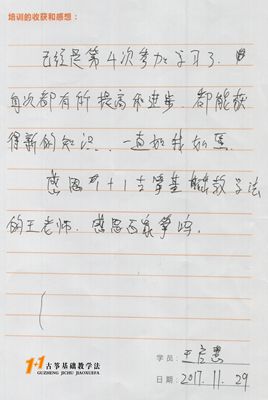 培训的收获和感想：
已经是第4次参加学习了，
每次都有所提高和进步，都能获
得新的知识，一直
感恩1+1古筝基础教学法
的王老师，感恩百家筝鸣。
1+1 古筝基础教学法
GUZHENG JICHU JIAOXUEFA
学员：王
日期：2017.11.29